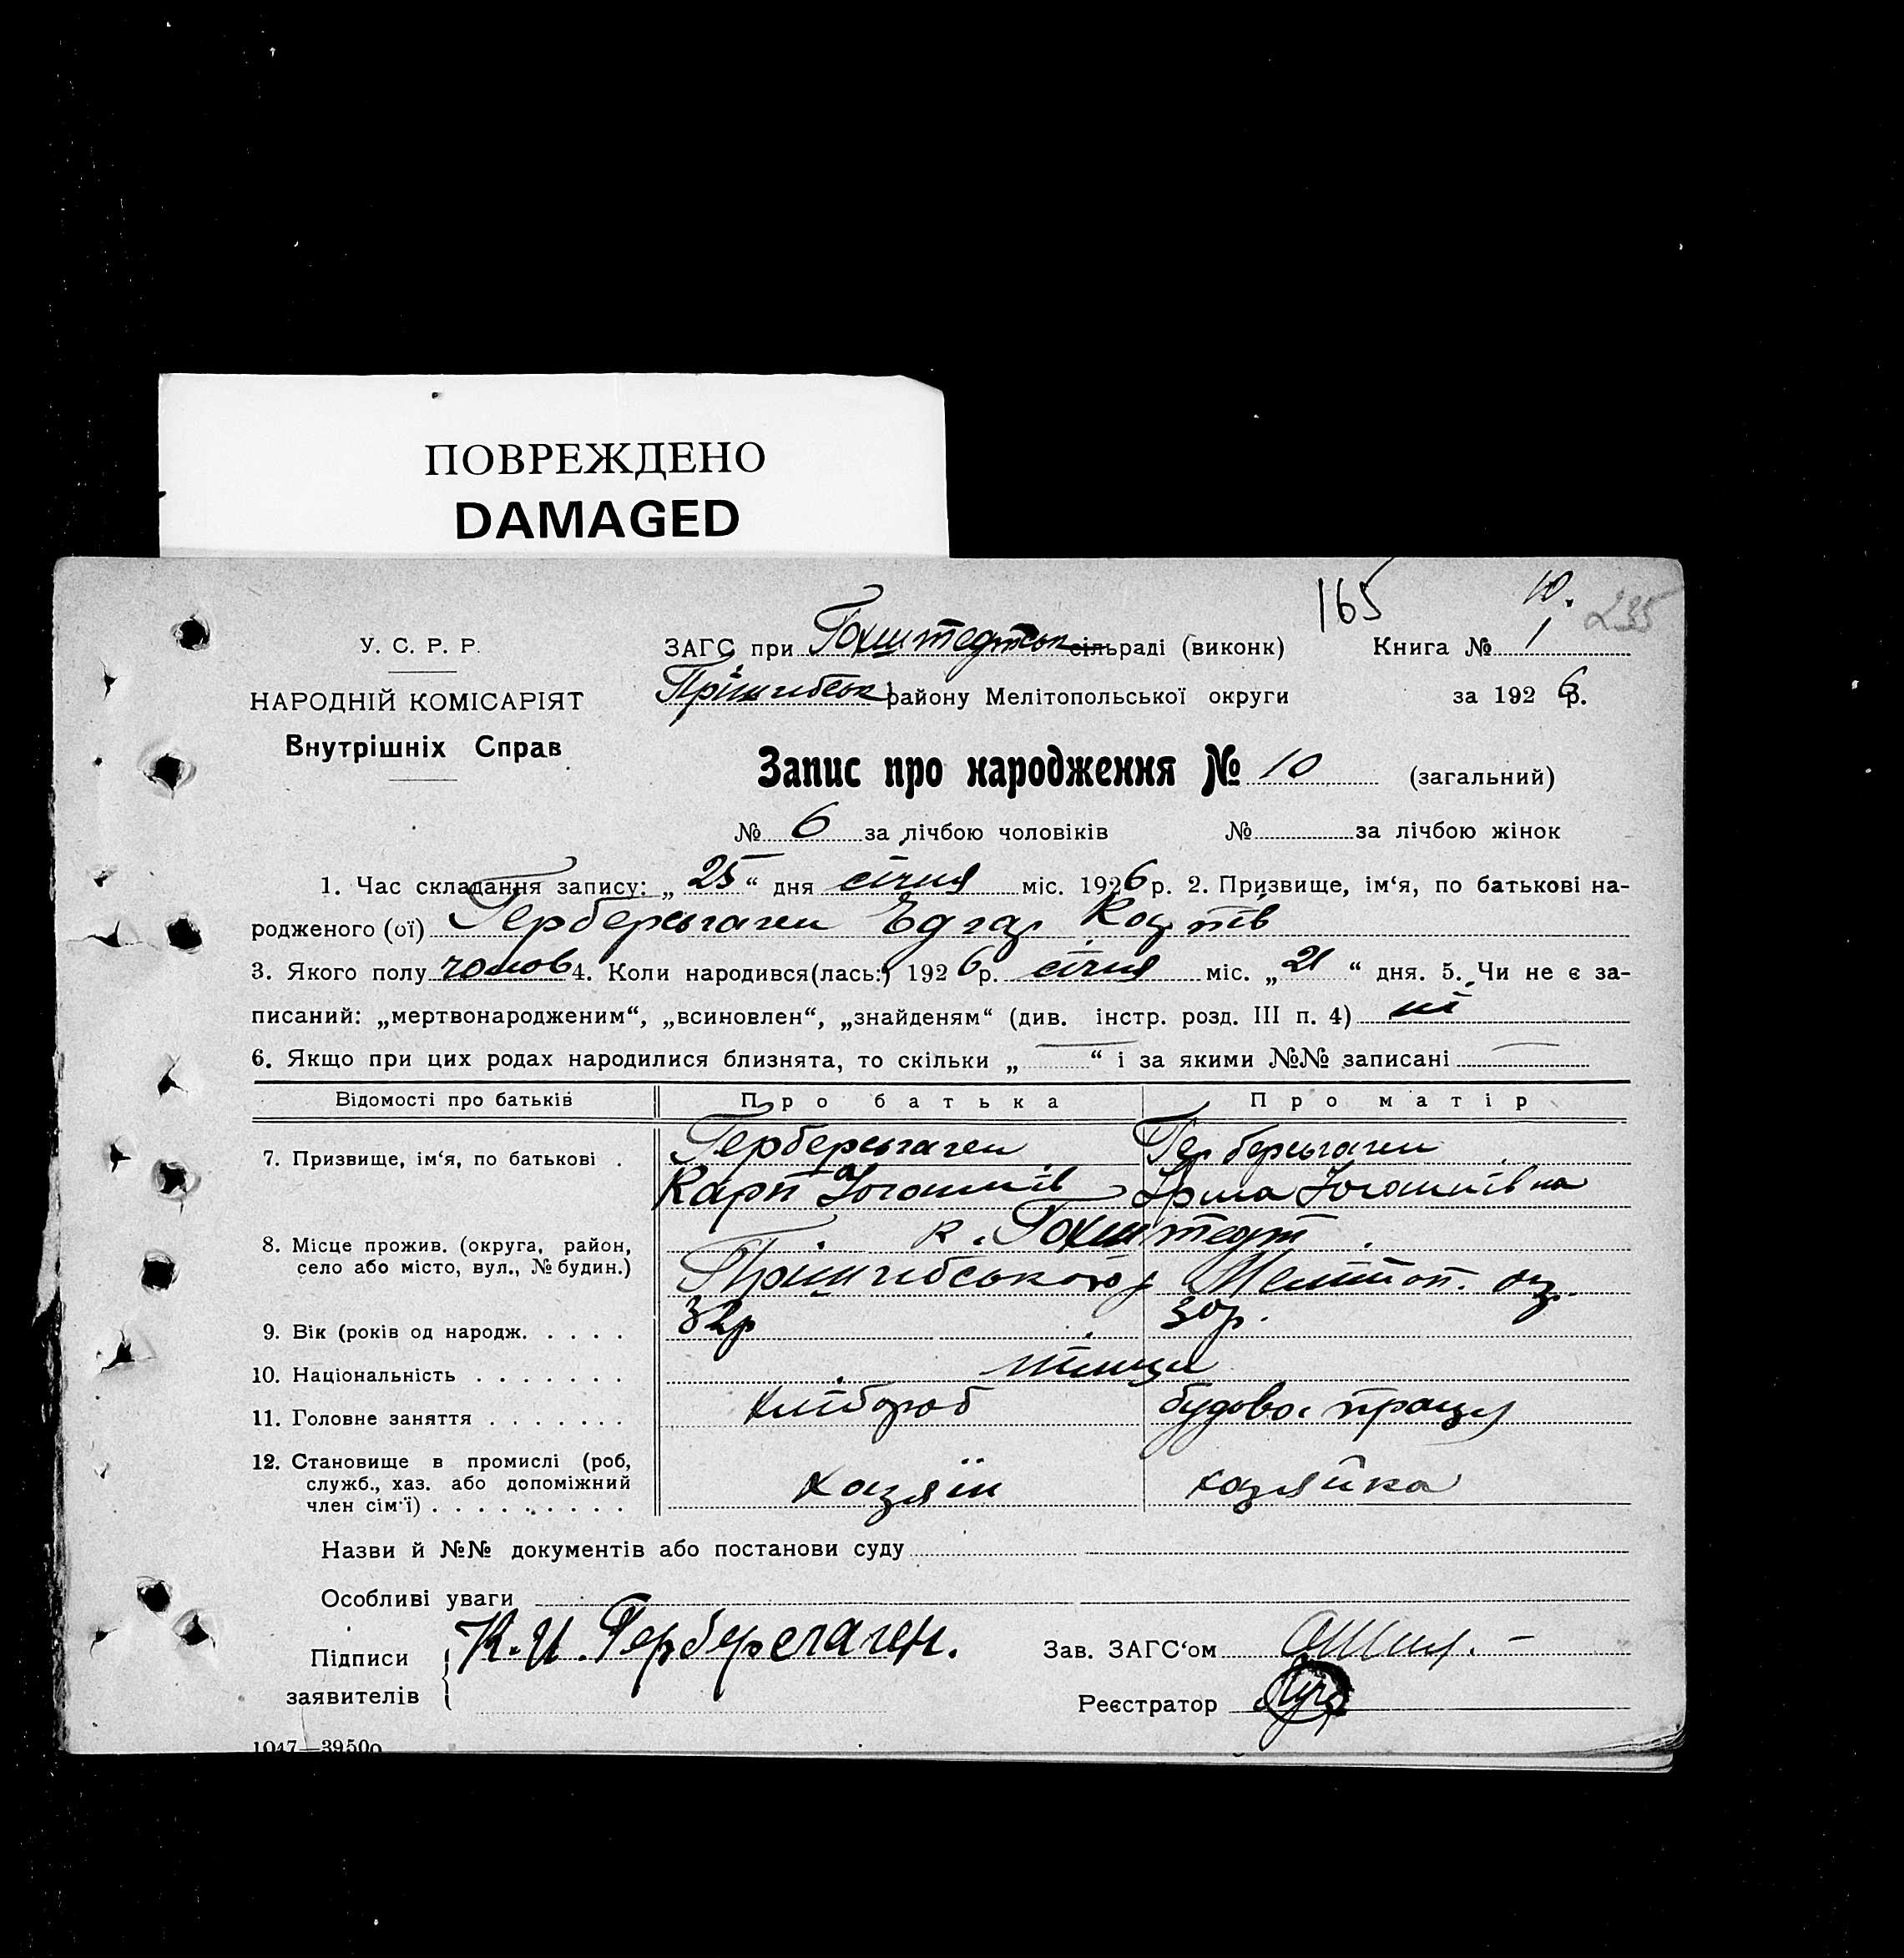 ПОВРЕЖДЕНО
DAMAGED
165
10.
235
У. С. Р. Р.
ЗАГС при Гохштедтськ сільраді (виконк) Книга № 1
НАРОДНІЙ КОМІСАРІЯТ
Пришибськ району Мелітопольської округи за 1926 р.
Внутрішніх Справ
Запис про народження № 10 (загальний)
№ 6 за лічбою чоловіків № за лічбою жінок
1. Час складання запису: „25“ дня січня міс. 1926 р. 2. Призвище, ім‘я, по батькові на-
родженого (ої) Герберсгаген Едгар
3. Якого полу чолов 4. Коли народився(лась:) 1926 р. січня міс. „21“ дня. 5. Чи не є за-
писаний: „мертвонародженим“, „всиновлен“, „знайденям“ (див. інстр. розд. III п. 4) ні
6. Якщо при цих родах народилися близнята, то скільки „ “ і за якими №№ записані
Відомості про батьків Про батька Про матір
7. Призвище, ім‘я, по батькові . Герберсгаген Герберсгаген
Ірма
8. Місце прожив. (округа, район, к. Гохштедт
село або місто, вул., № будин.) Пришибського р Меліт
9. Вік (років од народж. . . . . 32р 30р.
10. Національність . . . . . . . німці
11. Головне заняття . . . . . . . хлібороб працы
12. Становище в промислі (роб,
служб., хаз. або допоміжний хазяїн хазяйка
член сім‘ї) . . . . . . . . .
Назви й №№ документів або постанови суду
Особливі уваги
Підписи К. И. Герберсгаген. Зав. ЗАГС‘ом
заявителів Реєстратор
1047—39500